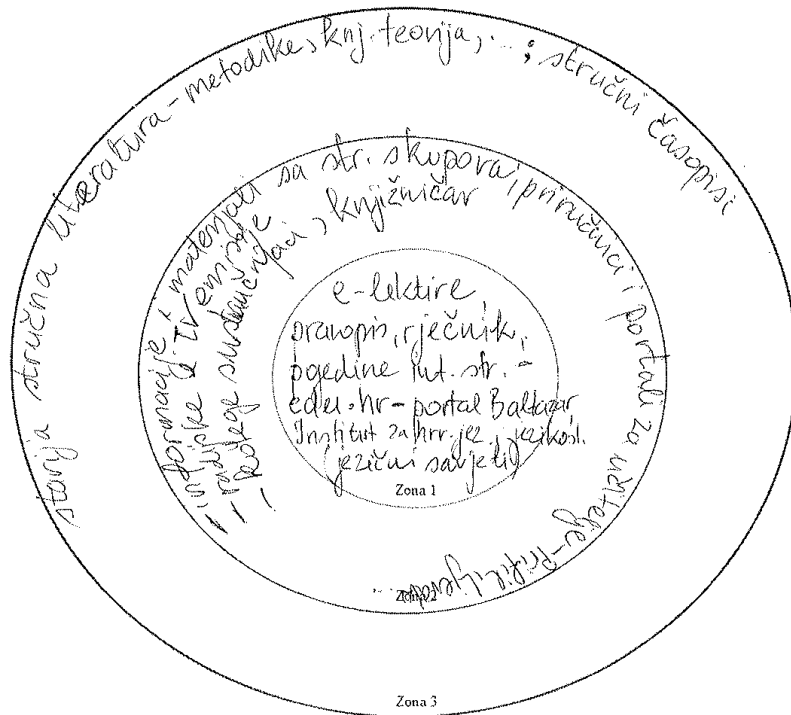 starija stručna literatura - metodike, knj. teorija, ...; stručni časopisi
- informacije i materijali sa str. skupova; priručnici i portali za učitelje - Profil, Ljevak...
- radijske i TV emisije
- kolege stručnjaci, knjižničar
e-lektire,
pravopis, rječnik,
pojedine int. str. -
edu.hr - portal Baltazar
Institut za hrv. jez. i jezikosl.
(jezični savjeti)
Zona 1
Zona 2
Zona 3